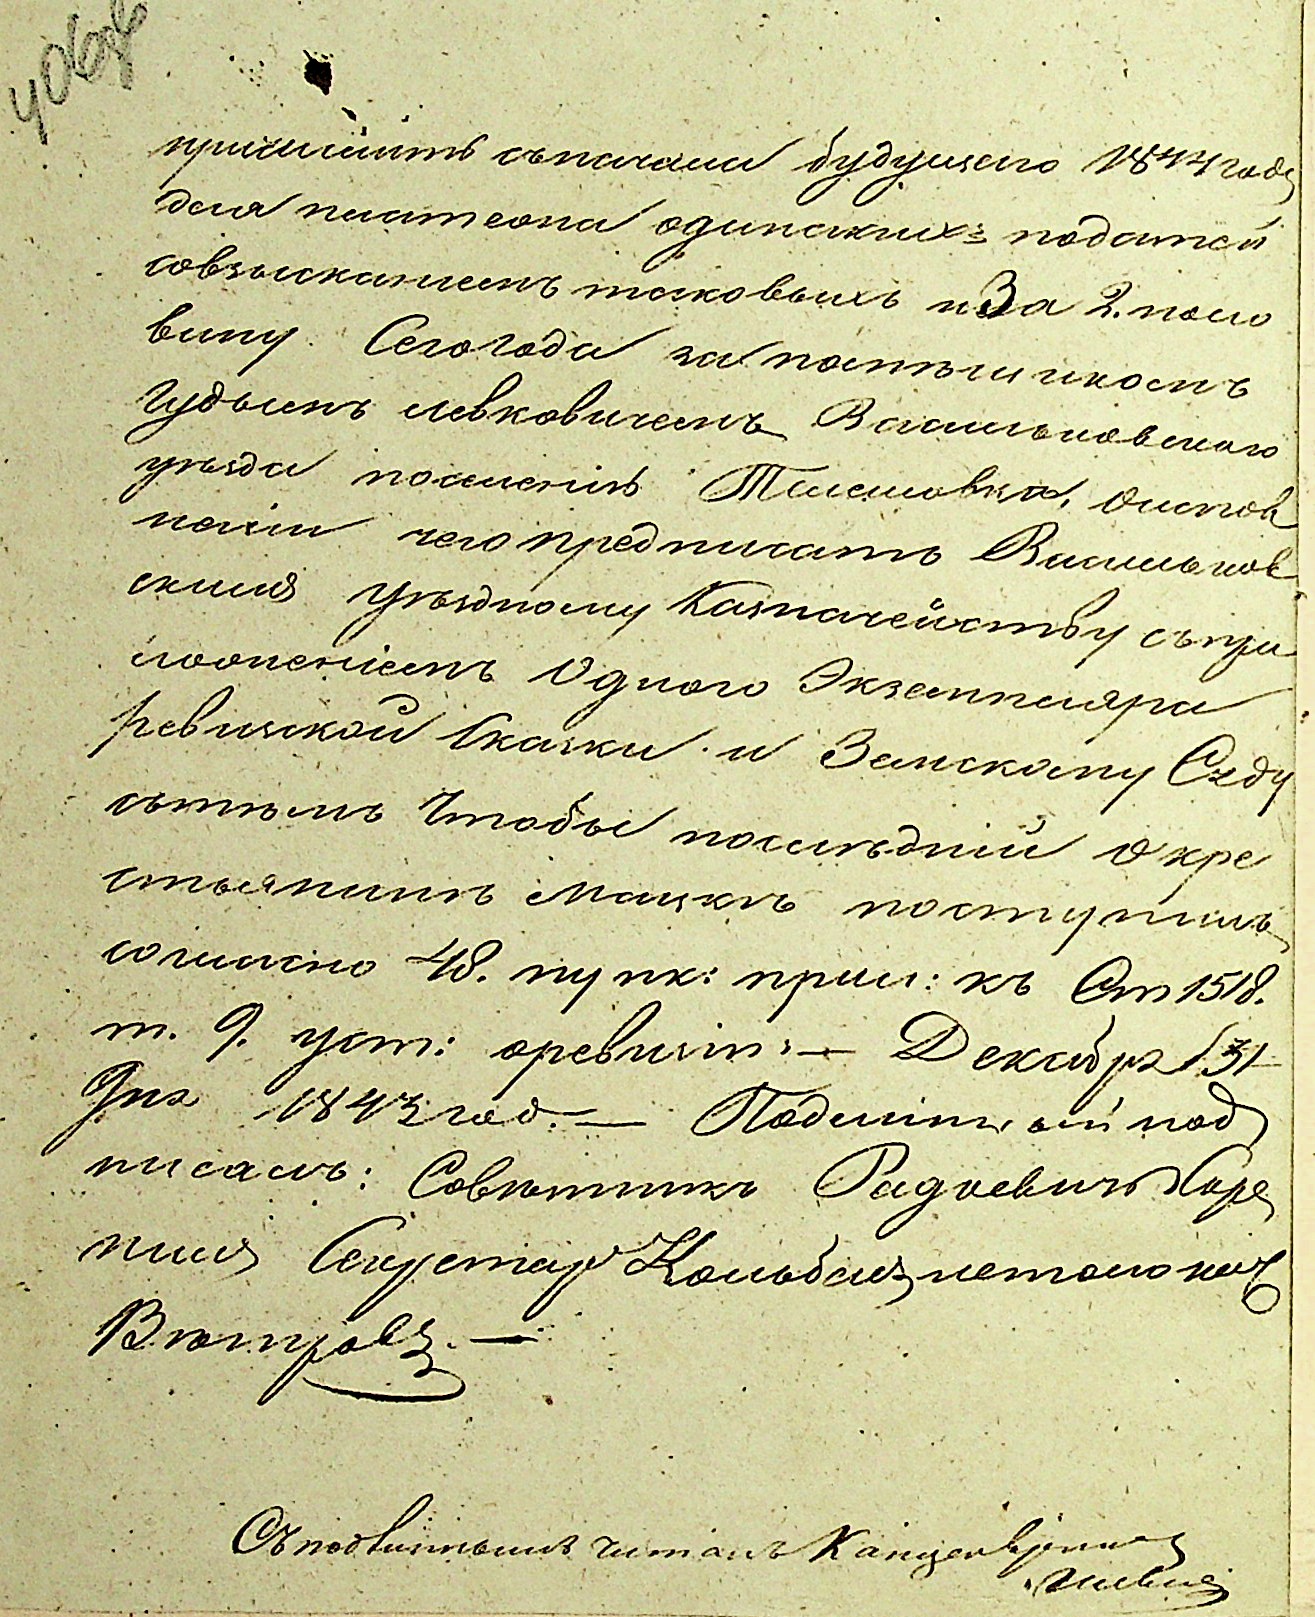 причислить съ начала будущаго 1844 года
для платежа одинакихъ податей
со взысканіемъ таковыхъ и За 2. поло
вину Сего года за помѣщикомъ
Гудымъ Левковичемъ Васильковскаго
уѣзда поселенія Телешовка, о испол
неніи чего предписать Васильков
скимъ Уѣздному Казначейству съ при
ложеніемъ Одного Экземпляра
ревизской Сказки и Земскому Суду
сътѣмъ Чтобы послѣдній О кре
стьянинѣ поступилъ
согласно 48. пунк: прил: къ Ст 1518.
т. 9. уст: о ревизіи: — Декабря 31
Дня 1843 год. — Подлинный под
писалъ: Совѣтникъ Радкевичъ Скрѣ
пилъ Секретарь
Вѣтровъ. —
Съ подлиннымъ читалъ Канцеляристъ